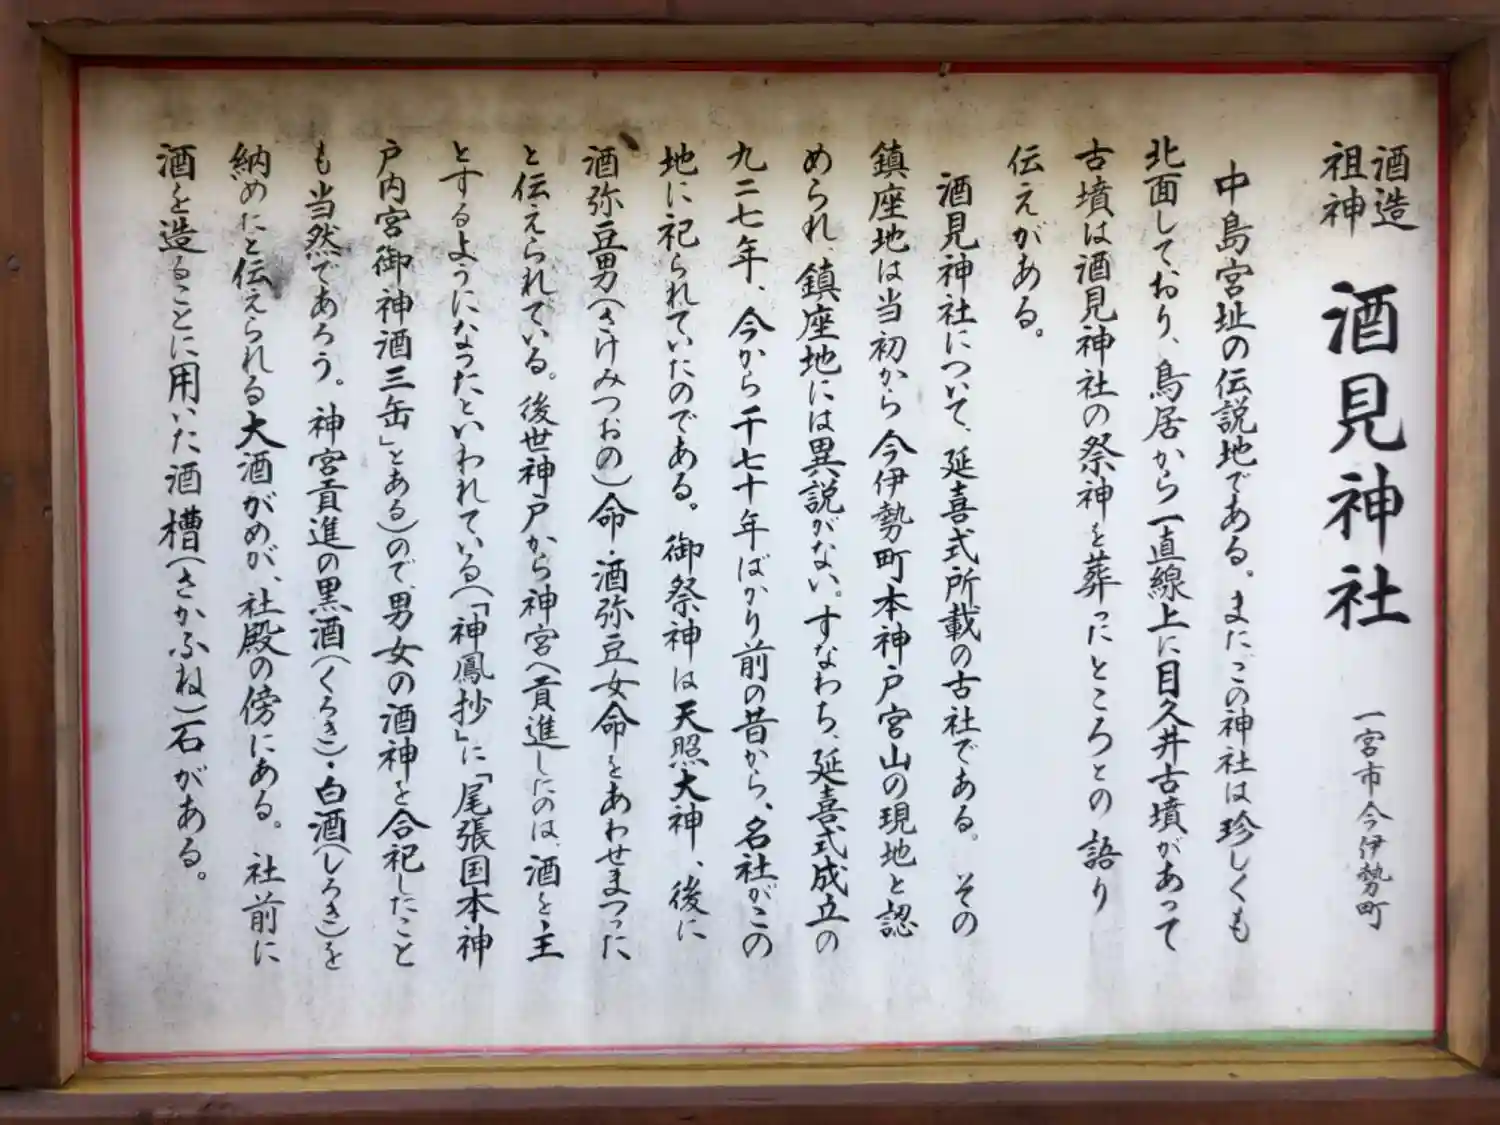 酒造
祖神
酒見神社
一宮市今伊勢町
中島宮址の伝説地である。またこの神社は珍しくも
北面しており、鳥居から一直線上に目久井古墳があって
古墳は酒見神社の祭神を葬ったところとの語り
伝えがある。
酒見神社について、延喜式所載の古社である。その
鎮座地は当初から今伊勢町本神戸宮山の現地と認
められ、鎮座地には異説がない。すなわち、延喜式成立の
九二七年、今から千七十年ばかり前の昔から、名社がこの
地に祀られていたのである。御祭神は天照大神、後に
酒弥豆男（さけみつおの）命・酒弥豆女命をあわせまつった
と伝えられている。後世神戸から神宮へ貢進したのは、酒を主
とするようになったといわれている（「神鳳抄」に「尾張国本神
戸内宮御神酒三缶」とある）ので、男女の酒神を合祀したこと
も当然であろう。神宮貢進の黒酒（くろき）・白酒（しろき）を
納めたと伝えられる大酒がめが、社殿の傍にある。社前に
酒を造ることに用いた酒槽（さかふね）石がある。